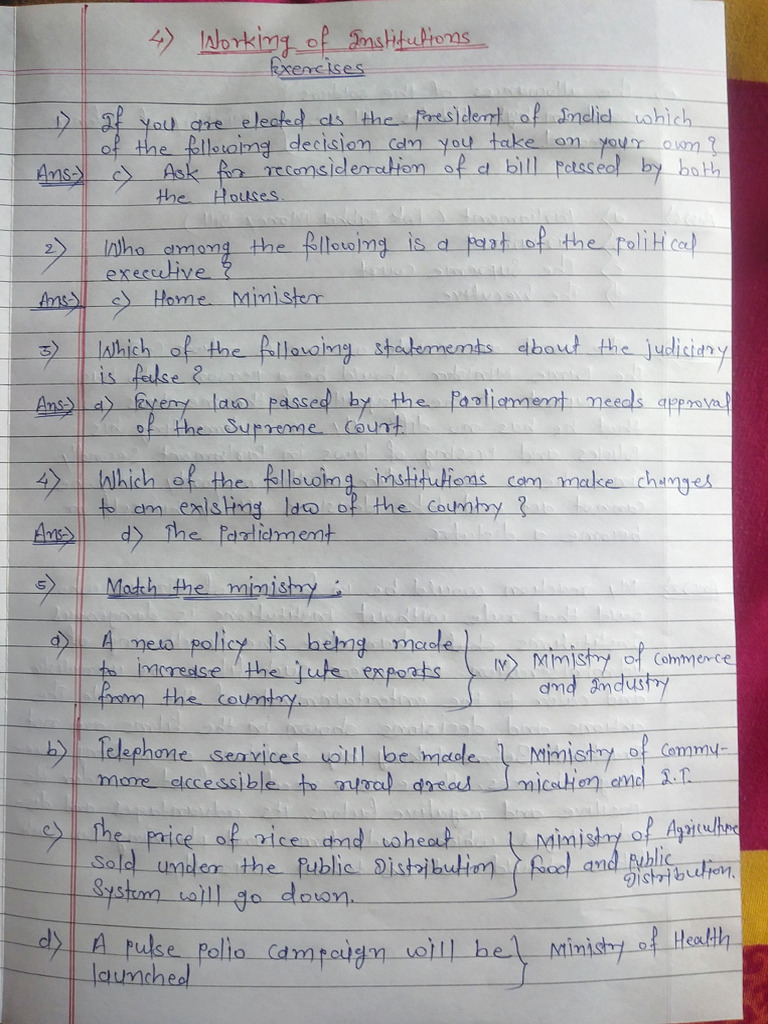 4) Working of Institutions
Exercises
1) If you are elected as the President of India which
of the following decision can you take on your own?
Ans:-) c) Ask for reconsideration of a bill passed by both
the Houses.
2) Who among the following is a part of the political
executive?
Ans:-) c) Home Minister
3) Which of the following statements about the judiciary
is false?
Ans:-) a) Every law passed by the Parliament needs approval
of the Supreme Court.
4) Which of the following institutions can make changes
to an existing law of the country?
Ans:-) d) The Parliament
5) Match the ministry:
a) A new policy is being made
to increase the jute exports
from the country.
iv) Ministry of Commerce
and Industry
b) Telephone services willl be made
more accessible to rural areas
Ministry of Commu-
nication and I.T.
c) The price of rice and wheat
sold under the Public Distribution
System will go down.
Ministry of Agriculture
Food and Public
Distribution.
d) A pulse polio campaign will be
launched
Ministry of Health